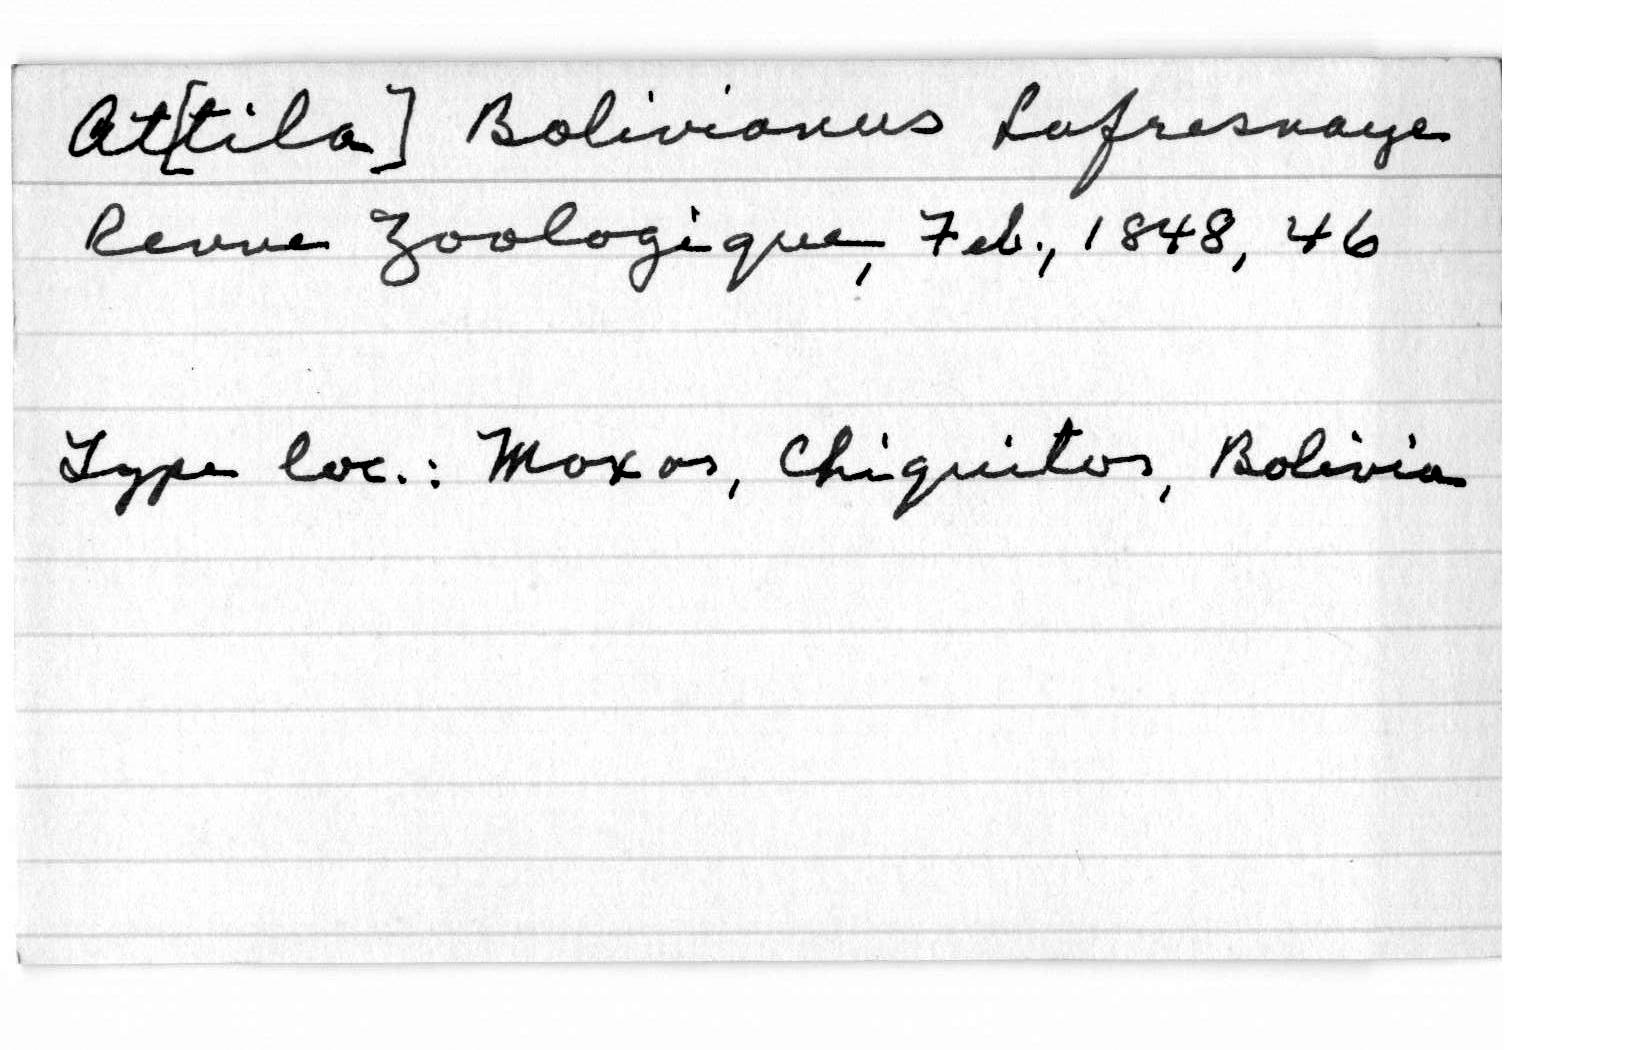 At[tila] Bolivianus Lafresnaye
Revue Zoologique, Feb., 1848, 46
Type loc.: Moxos, Chiquitos, Bolivia